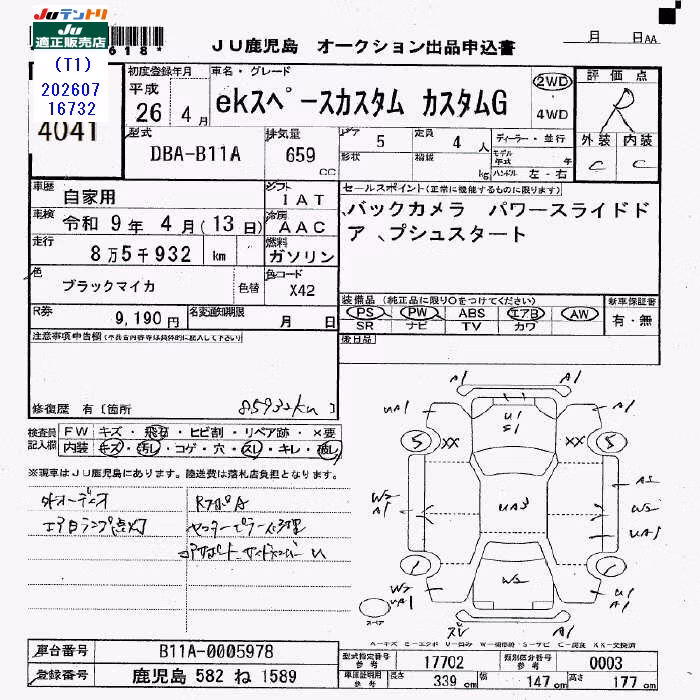 JUテントリ
JU
適正販売店
618*
JU鹿児島 オークション出品申込書
月 日AA
(T1)
202607
16732
4041
初度登録年月
平成
26 4月
車名・グレード
ekスペースカスタム カスタムG
2WD
・
4WD
評価点
R
外装 内装
C C
型式
DBA-B11A
排気量
659
cc
ドア
5
形状
定員
4人
積載
kg
ディーラー・並行
モデル
年式 年
ハンドル 左・右
車歴
自家用
シフト
IAT
セールスポイント(正常に機能するものに限ります)
、バックカメラ パワースライドド
ア 、プシュスタート
車検
令和 9年 4月(13日)
冷房
AAC
走行
8万5千932 km
燃料
ガソリン
色
ブラックマイカ
色替
色コード
X42
装備品 (純正品に限り○をつけてください)
PS PW ABS エアB AW
SR ナビ TV カワ
新車保証書
有・無
R券
9,190円
名変通知期限
月 日
後日品
注意事項申告欄(不具合内容等は具体的に記入して下さい)
修復歴 有[箇所 85932km]
検査員
記入欄
FW キズ・飛石・ヒビ割・リペア跡・×要
内装 キズ・汚レ・コゲ・穴・スレ・キレ・剥レ
※現車はJU鹿児島にあります。陸送費は落札店負担となります。
外オーディオ
エアBランプ点灯
A1 A1
UA1 A1
U1
S1
5 XX XX 5
W2
A1
UA3
A2
W2
UA1
1 1
W2
UA1
W2
U1
A1
スペア
A-キズ E-エクボ U-凹み W-補修跡 S-サビ C-腐食 XX-交換済
車台番号
B11A-0005978
登録番号
鹿児島 582 ね 1589
型式指定番号
参考
17702
類別区分番号
参考
0003
車庫証明用
参考
長さ
339cm
幅
147cm
高さ
177cm